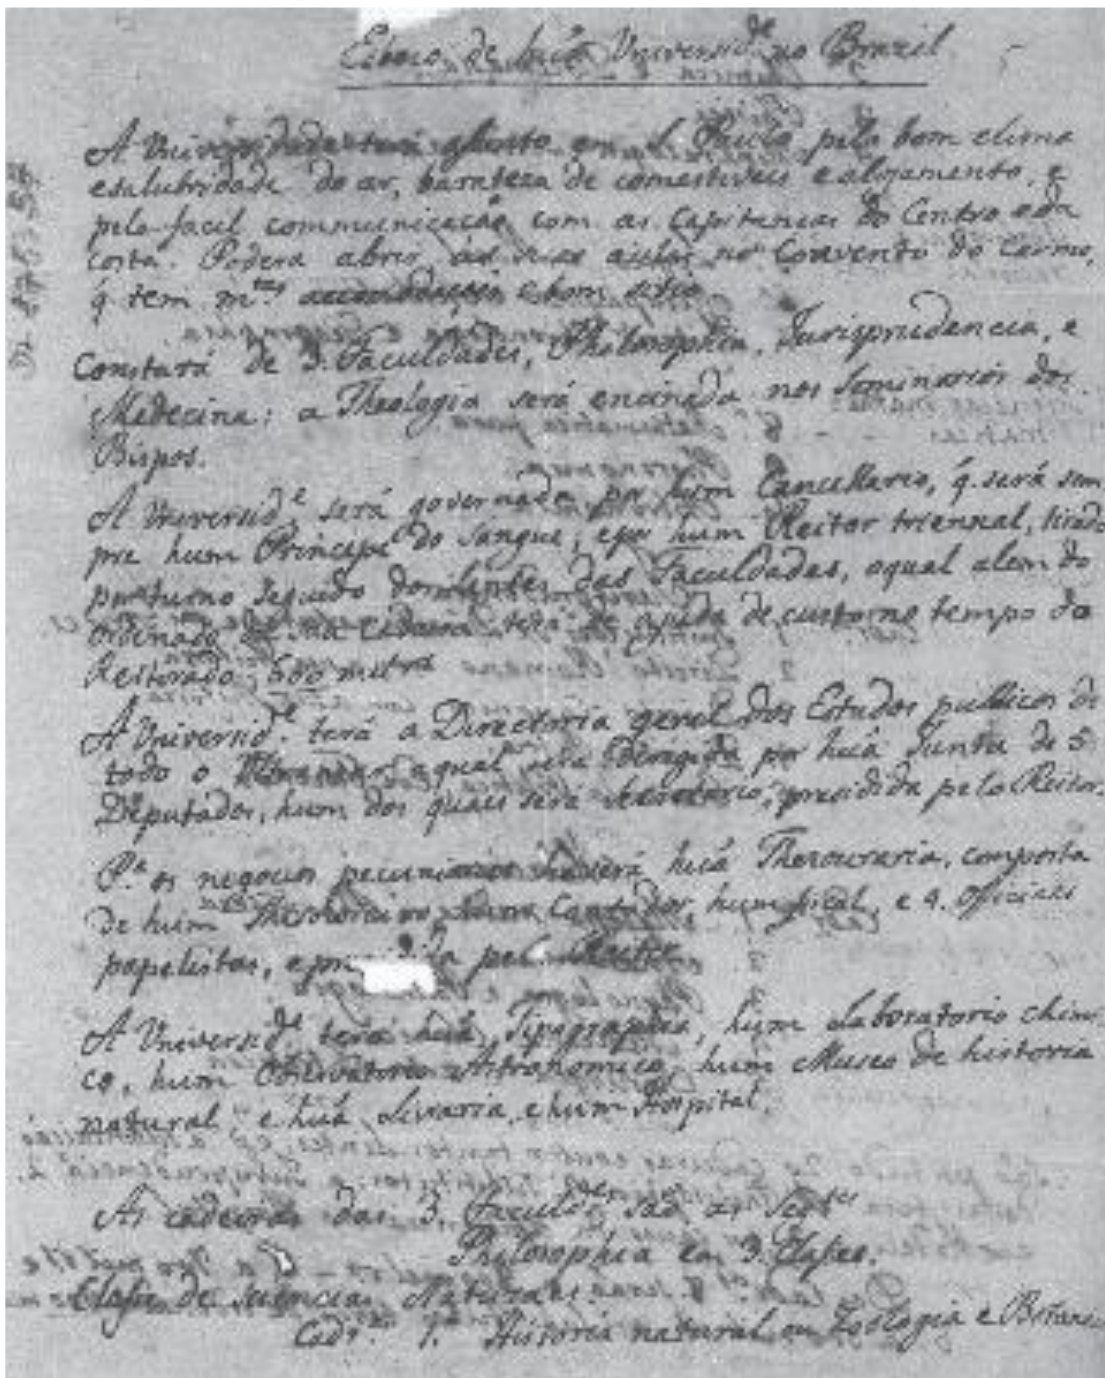 Esboço de huã Universid.e no Brazil
A Universidade terá assento em S. Paulo pelo bom clima
e salubridade do ar, barateza de comestiveis e alojamento, e
pela facil communicação com as Capitanias do Centro e da
costa. Poderá abrir as suas aulas no Convento do Carmo,
q̃ tem m.tas e bom sitio.
Constará de 3. Faculdades, Philosophia, Jurisprudencia, e
Medecina: a Theologia será encinada nos Seminarios dos
Bispos.
A Universid.e será governada por hum Cancellario, q̃ será sem
pre hum Principe do Sangue, e por hum Reitor triennal, tirado
por turno seguido dos lentes das Faculdades, o qual alem do
ordenado de sua cadeira terá de ajuda de custo no tempo do
Reitorado, 600 mil
A Universid.e terá a Directoria geral dos Estudos publicos de
todo o a qual será derigida por huã Junta de 5
Deputados, hum dos quaes será secretario, presidida pelo Reitor.
P.a os negocios pecuniarios haverá huã Thezouraria, composta
de hum Thesoureiro, hum Contador, hum fiscal, e 4. Officiaes
papelistas, e pelo Reitor.
A Universid.e terá huã Tipographia, hum Laboratorio chimi
co, hum Observatorio Astronomico, hum Museo de historia
natural, e huã Livraria, e hum Hospital.
As cadeiras das 3. Faculd.es são as seg.tes
Philosophia em 3. Classes.
Classe de Sciencias Naturaes.
Cadr.a 1.a Historia natural ou Zoologia e Botanica